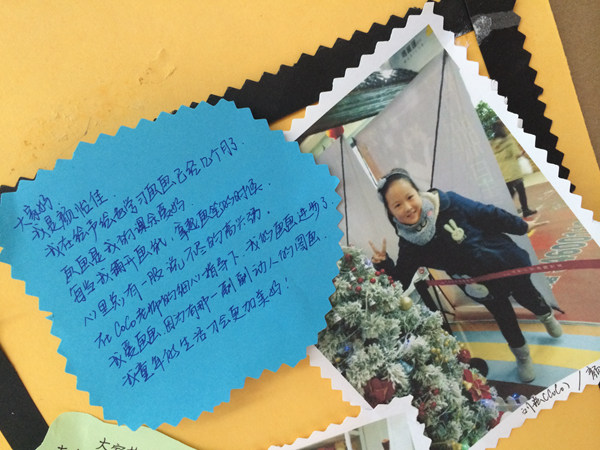 大家好
我是顾怡佳.
我在绘声绘色学习画画已经几个月了
画画是我的课余爱好
每当我摊开画纸,拿起画笔的时候.
心里总有一股说不尽的高兴劲.
在CoCo老师的细心指导下.我的画画进步了.
我爱画画.因为有那一副副动人的图画.
我童年的生活才会更加美好!
(CoCo) /
大家